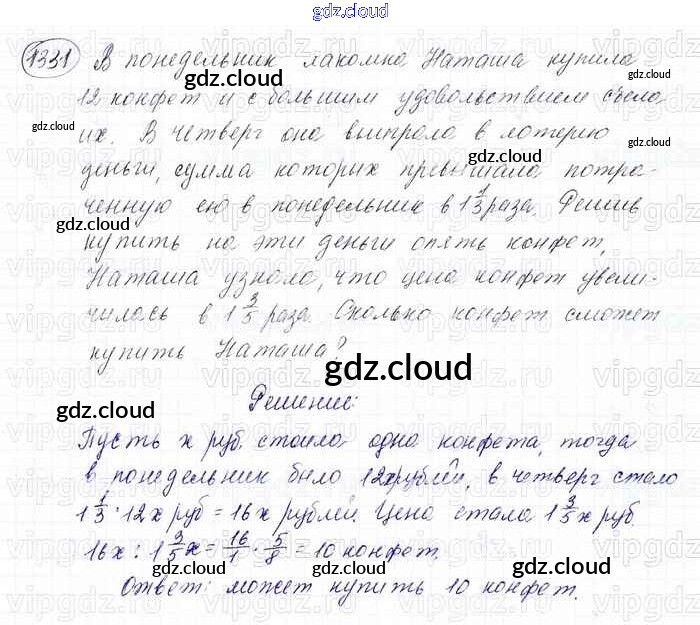 gdz.cloud
1331 В понедельник лакомка Наташа купила
12 конфет и с большим удовольствием съела
их. В четверг она выиграла в лотерею
деньги, сумма которых превышала потра-
ченную ею в понедельник в 1 1/3 раза. Решив
купить на эти деньги опять конфет,
Наташа узнала, что цена конфет увели-
чилась в 1 3/5 раза. Сколько конфет сможет
купить Наташа?
Решение:
Пусть x руб. стоила одна конфета, тогда
в понедельник было 12x рублей, в четверг стало
1 1/3 · 12x руб = 16x рублей. Цена стала 1 3/5 x руб.
16x : 1 3/5 x = 16/1 · 5/8 = 10 конфет.
Ответ: может купить 10 конфет.
gdz.cloud
gdz.cloud
gdz.cloud
gdz.cloud
gdz.cloud
gdz.cloud
gdz.cloud
gdz.cloud
gdz.cloud
gdz.cloud
gdz.cloud
gdz.cloud
gdz.cloud